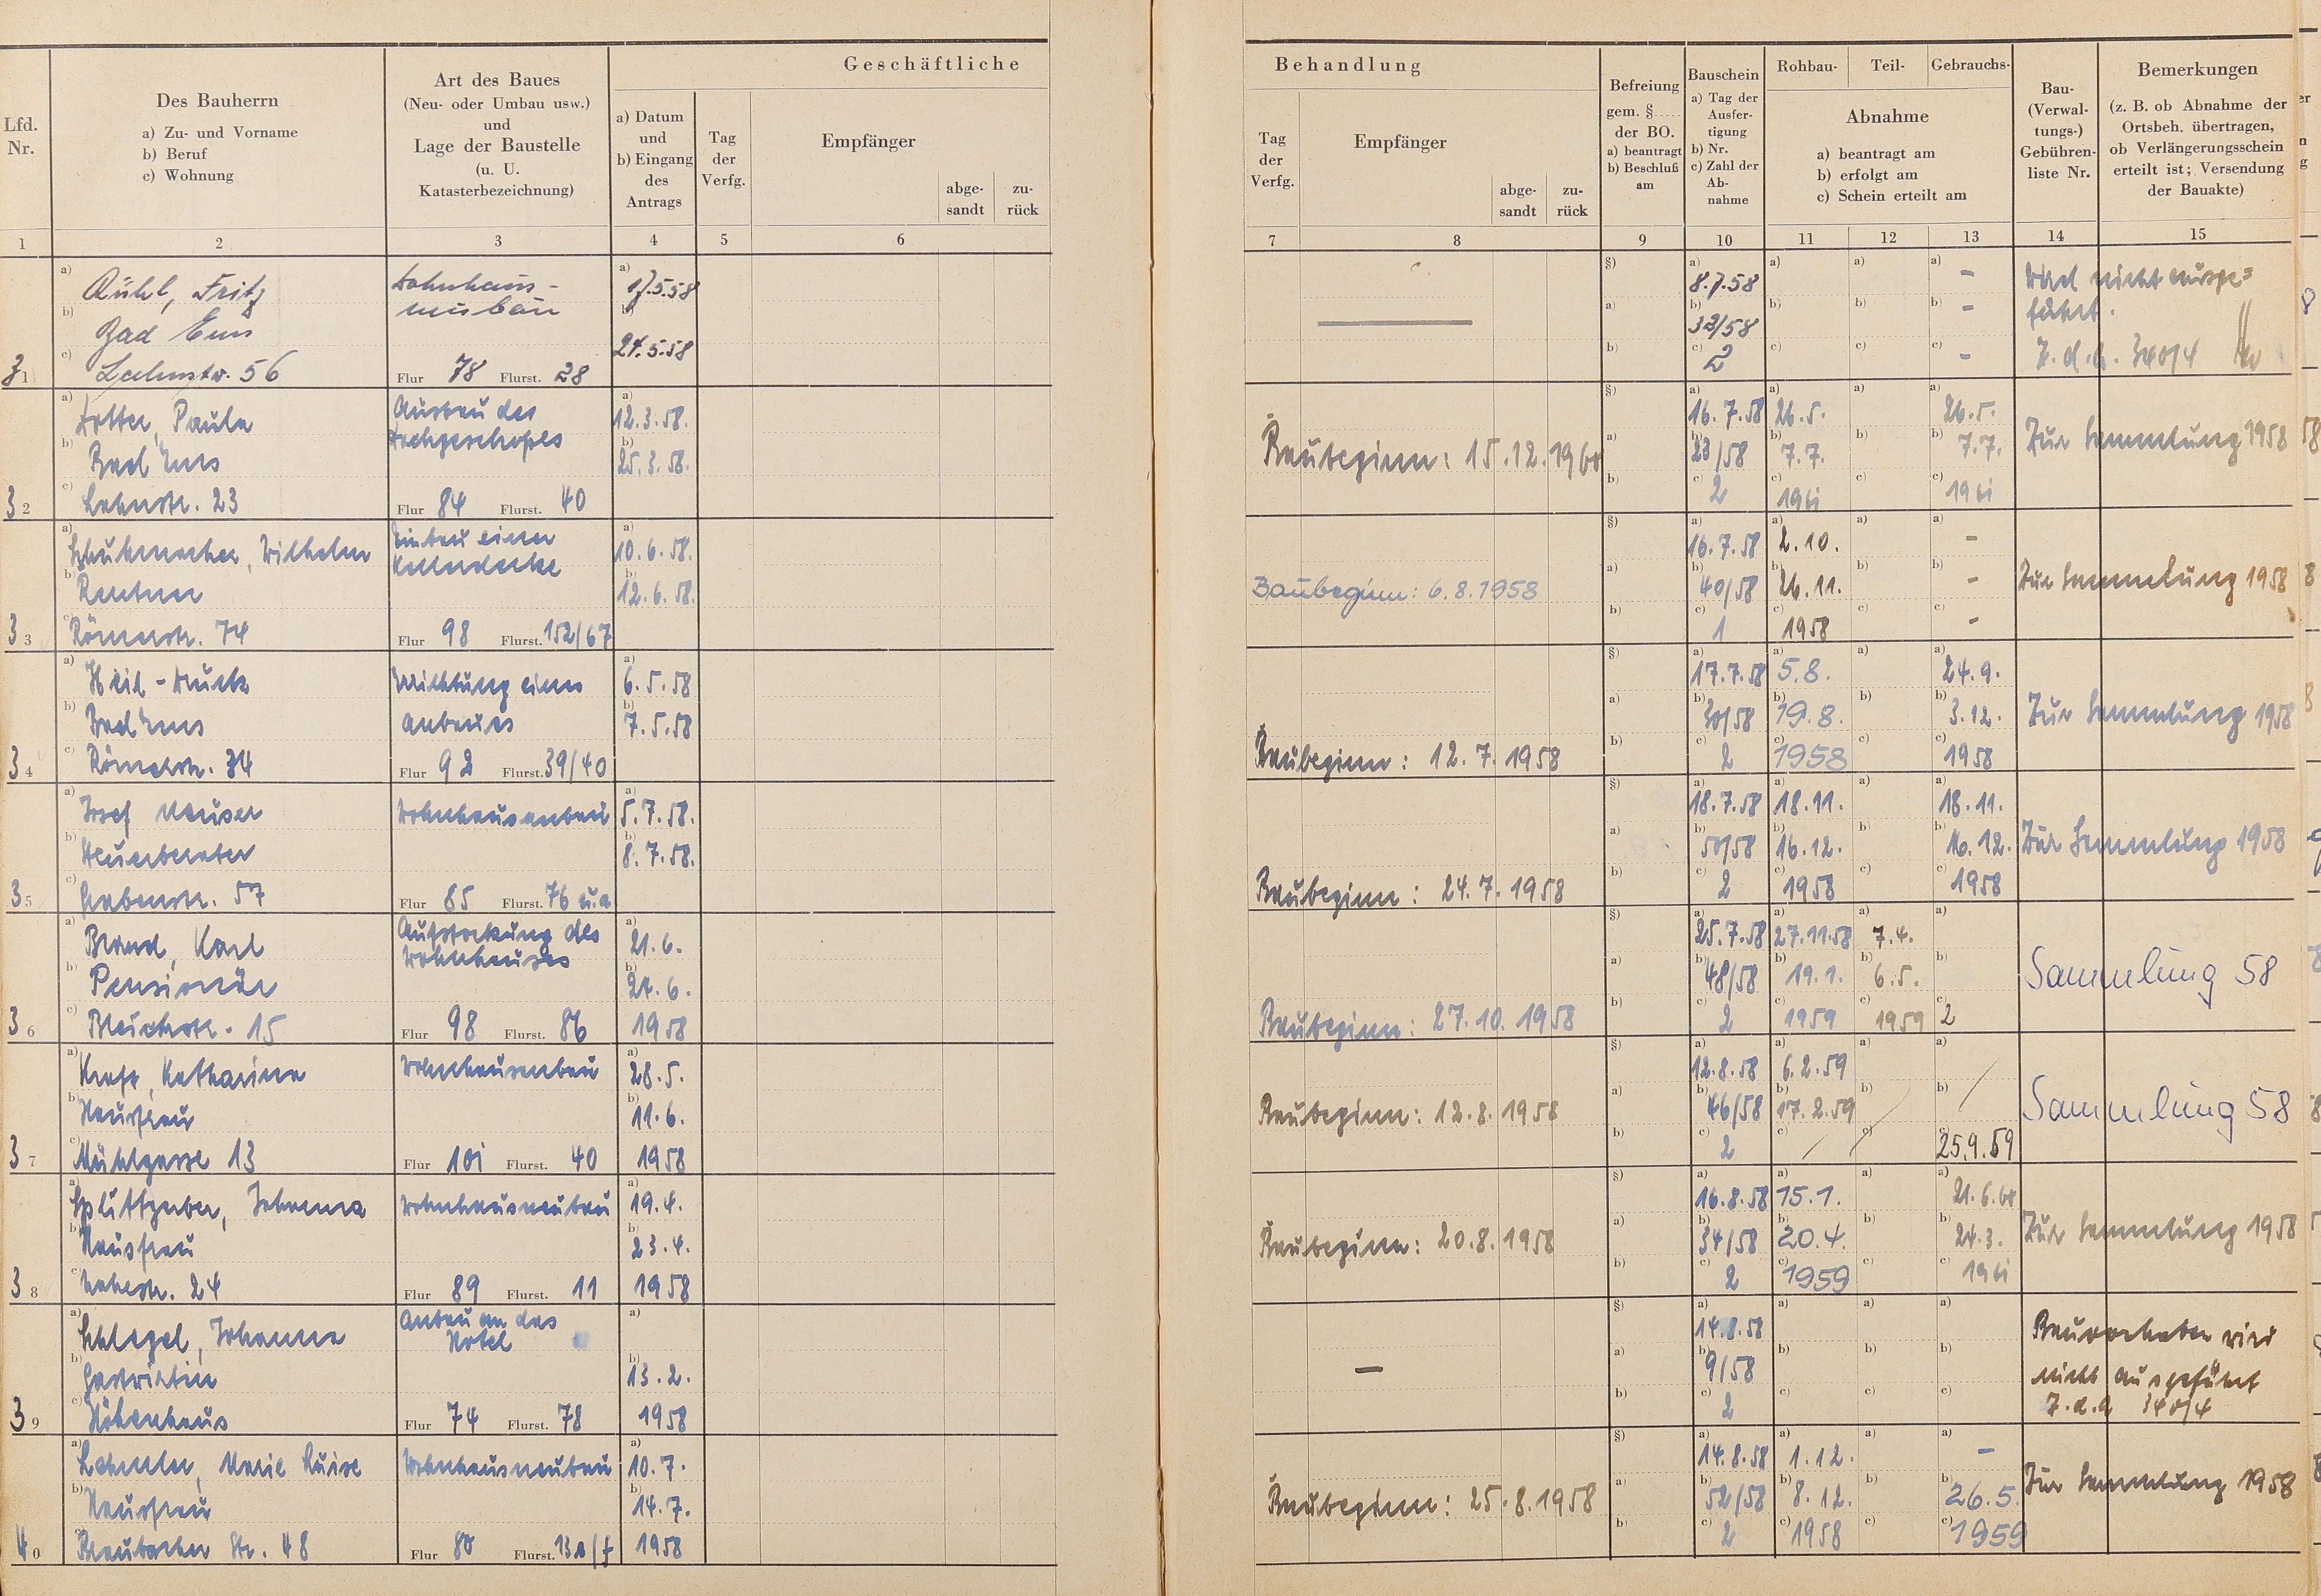 Geschäftliche
Lfd.
Nr.
Des Bauherrn
a) Zu- und Vorname
b) Beruf
c) Wohnung
Art des Baues
(Neu- oder Umbau usw.)
und
Lage der Baustelle
(u. U.
Katasterbezeichnung)
a) Datum
und
b) Eingang
des
Antrags
Tag
der
Verfg.
Empfänger
abge-
sandt
zu-
rück
1 2 3 4 5 6
a) Rühl, Fritz
b) Bad Ems
c) Lahnstr. 56
31
Wohnhaus-
neubau
Flur 78 Flurst. 28
a) 17.5.58
b) 24.5.58
a) Paula
b) Bad Ems
c) Lahnstr. 23
32
Ausbau des
Dachgeschoßes
Flur 84 Flurst. 40
a) 12.3.58.
b) 25.3.58.
a) Schuhmacher, Wilhelm
b) Rentner
c) Römerstr. 74
33
Einbau einer
Kellerdecke
Flur 98 Flurst. 152/67
a) 10.6.58.
b) 12.6.58.
a)
b) Bad Ems
c) Römerstr. 34
34
Errichtung eines
Anbaues
Flur 92 Flurst. 39/40
a) 6.5.58
b) 7.5.58
a) Josef Meuser
b) Steuerberater
c) Grabenstr. 57
35
Wohnhausanbau
Flur 85 Flurst. 76 u.a
a) 5.7.58.
b) 8.7.58.
a) Brand, Karl
b) Pensionär
c) Bleichstr. 15
36
Aufstockung des
Wohnhauses
Flur 98 Flurst. 86
a) 21.6.
b) 24.6.
1958
a) Katharina
b) Hausfrau
c) Mühlgasse 13
37
Flur 101 Flurst. 40
a) 28.5.
b) 11.6.
1958
a) Johanna
b) Hausfrau
c) 24
38
Wohnhausneubau
Flur 89 Flurst. 11
a) 19.4.
b) 23.4.
1958
a) Schlegel, Johanna
b) Gastwirtin
c) Höhenhaus
39
Anbau an das
Hotel
Flur 74 Flurst. 78
a)
b) 13.2.
1958
a) Marie Luise
b) Hausfrau
c) Braubacher Str. 48
40
Wohnhausneubau
Flur 80 Flurst.
a) 10.7.
b) 14.7.
1958
Behandlung
Tag
der
Verfg.
Empfänger
abge-
sandt
zu-
rück
Befreiung
gem. §.....
der BO.
a) beantragt
b) Beschluß
am
Bauschein
a) Tag der
Ausfer-
tigung
b) Nr.
c) Zahl der
Ab-
nahme
Rohbau- Teil- Gebrauchs-
Abnahme
a) beantragt am
b) erfolgt am
c) Schein erteilt am
Bau-
(Verwal-
tungs-)
Gebühren-
liste Nr.
Bemerkungen
(z. B. ob Abnahme der
Ortsbeh. übertragen,
ob Verlängerungsschein
erteilt ist; Versendung
der Bauakte)
7 8 9 10 11 12 13 14 15
§) a) 8.7.58 a) a) a) -
a) b) 32/58 b) b) b) -
b) c) 2 c) c) c) -
Wird nicht ausge=
führt.
Z.d.A. 340/4
Baubeginn: 15.12.1960
§) a) 16.7.58 a) 26.5. a) a) 26.5.
a) b) 23/58 b) 7.7. b) b) 7.7.
b) c) 2 c) 1961 c) c) 1961
Zur Sammlung 1958
Baubeginn: 6.8.1958
§) a) 16.7.58 a) 2.10. a) a) -
a) b) 40/58 b) 26.11. b) b) -
b) c) 1 c) 1958 c) c) -
Zur Sammlung 1958
Baubeginn: 12.7.1958
§) a) 17.7.58 a) 5.8. a) a) 24.9.
a) b) 30/58 b) 19.8. b) b) 3.12.
b) c) 2 c) 1958 c) c) 1958
Zur Sammlung 1958
Baubeginn: 24.7.1958
§) a) 18.7.58 a) 18.11. a) a) 18.11.
a) b) 50/58 b) 16.12. b) b) 16.12.
b) c) 2 c) 1958 c) c) 1958
Zur Sammlung 1958
Baubeginn: 27.10.1958
§) a) 25.7.58 a) 27.11.58 a) 7.4. a)
a) b) 48/58 b) 19.1. b) 6.5. b)
b) c) 2 c) 1959 c) 1959 c) 2
Sammlung 58
Baubeginn: 12.8.1958
§) a) 12.8.58 a) 6.2.59 a) a)
a) b) 46/58 b) 17.2.59 b) b)
b) c) 2 c) c) c) 25.9.59
Sammlung 58
Baubeginn: 20.8.1958
§) a) 16.8.58 a) 15.1. a) a)
a) b) 34/58 b) 20.4. b) b) 24.3.
b) c) 2 c) 1959 c) c) 1961
Zur Sammlung 1958
§) a) 14.8.58 a) a) a)
a) b) 9/58 b) b) b)
b) c) 2 c) c) c)
Bauvorhaben wird
nicht ausgeführt
Z.d.A 340/4
Baubeginn: 25.8.1958
§) a) 14.8.58 a) 1.12. a) a) -
a) b) 52/58 b) 8.12. b) b) 26.5.
b) c) 2 c) 1958 c) c) 1959
Zur Sammlung 1958